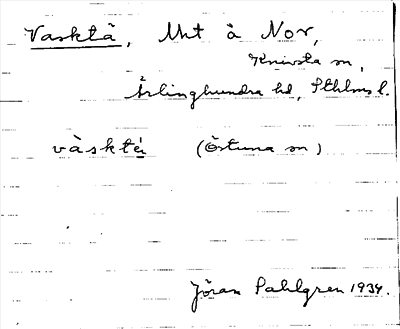 Vasktå, Mnt å Nor,
Knivsta sn,
Ärlinghundra hd, Sthlms l.
vàsktẹ́ (Östuna sn)
Jöran Sahlgren 1934.